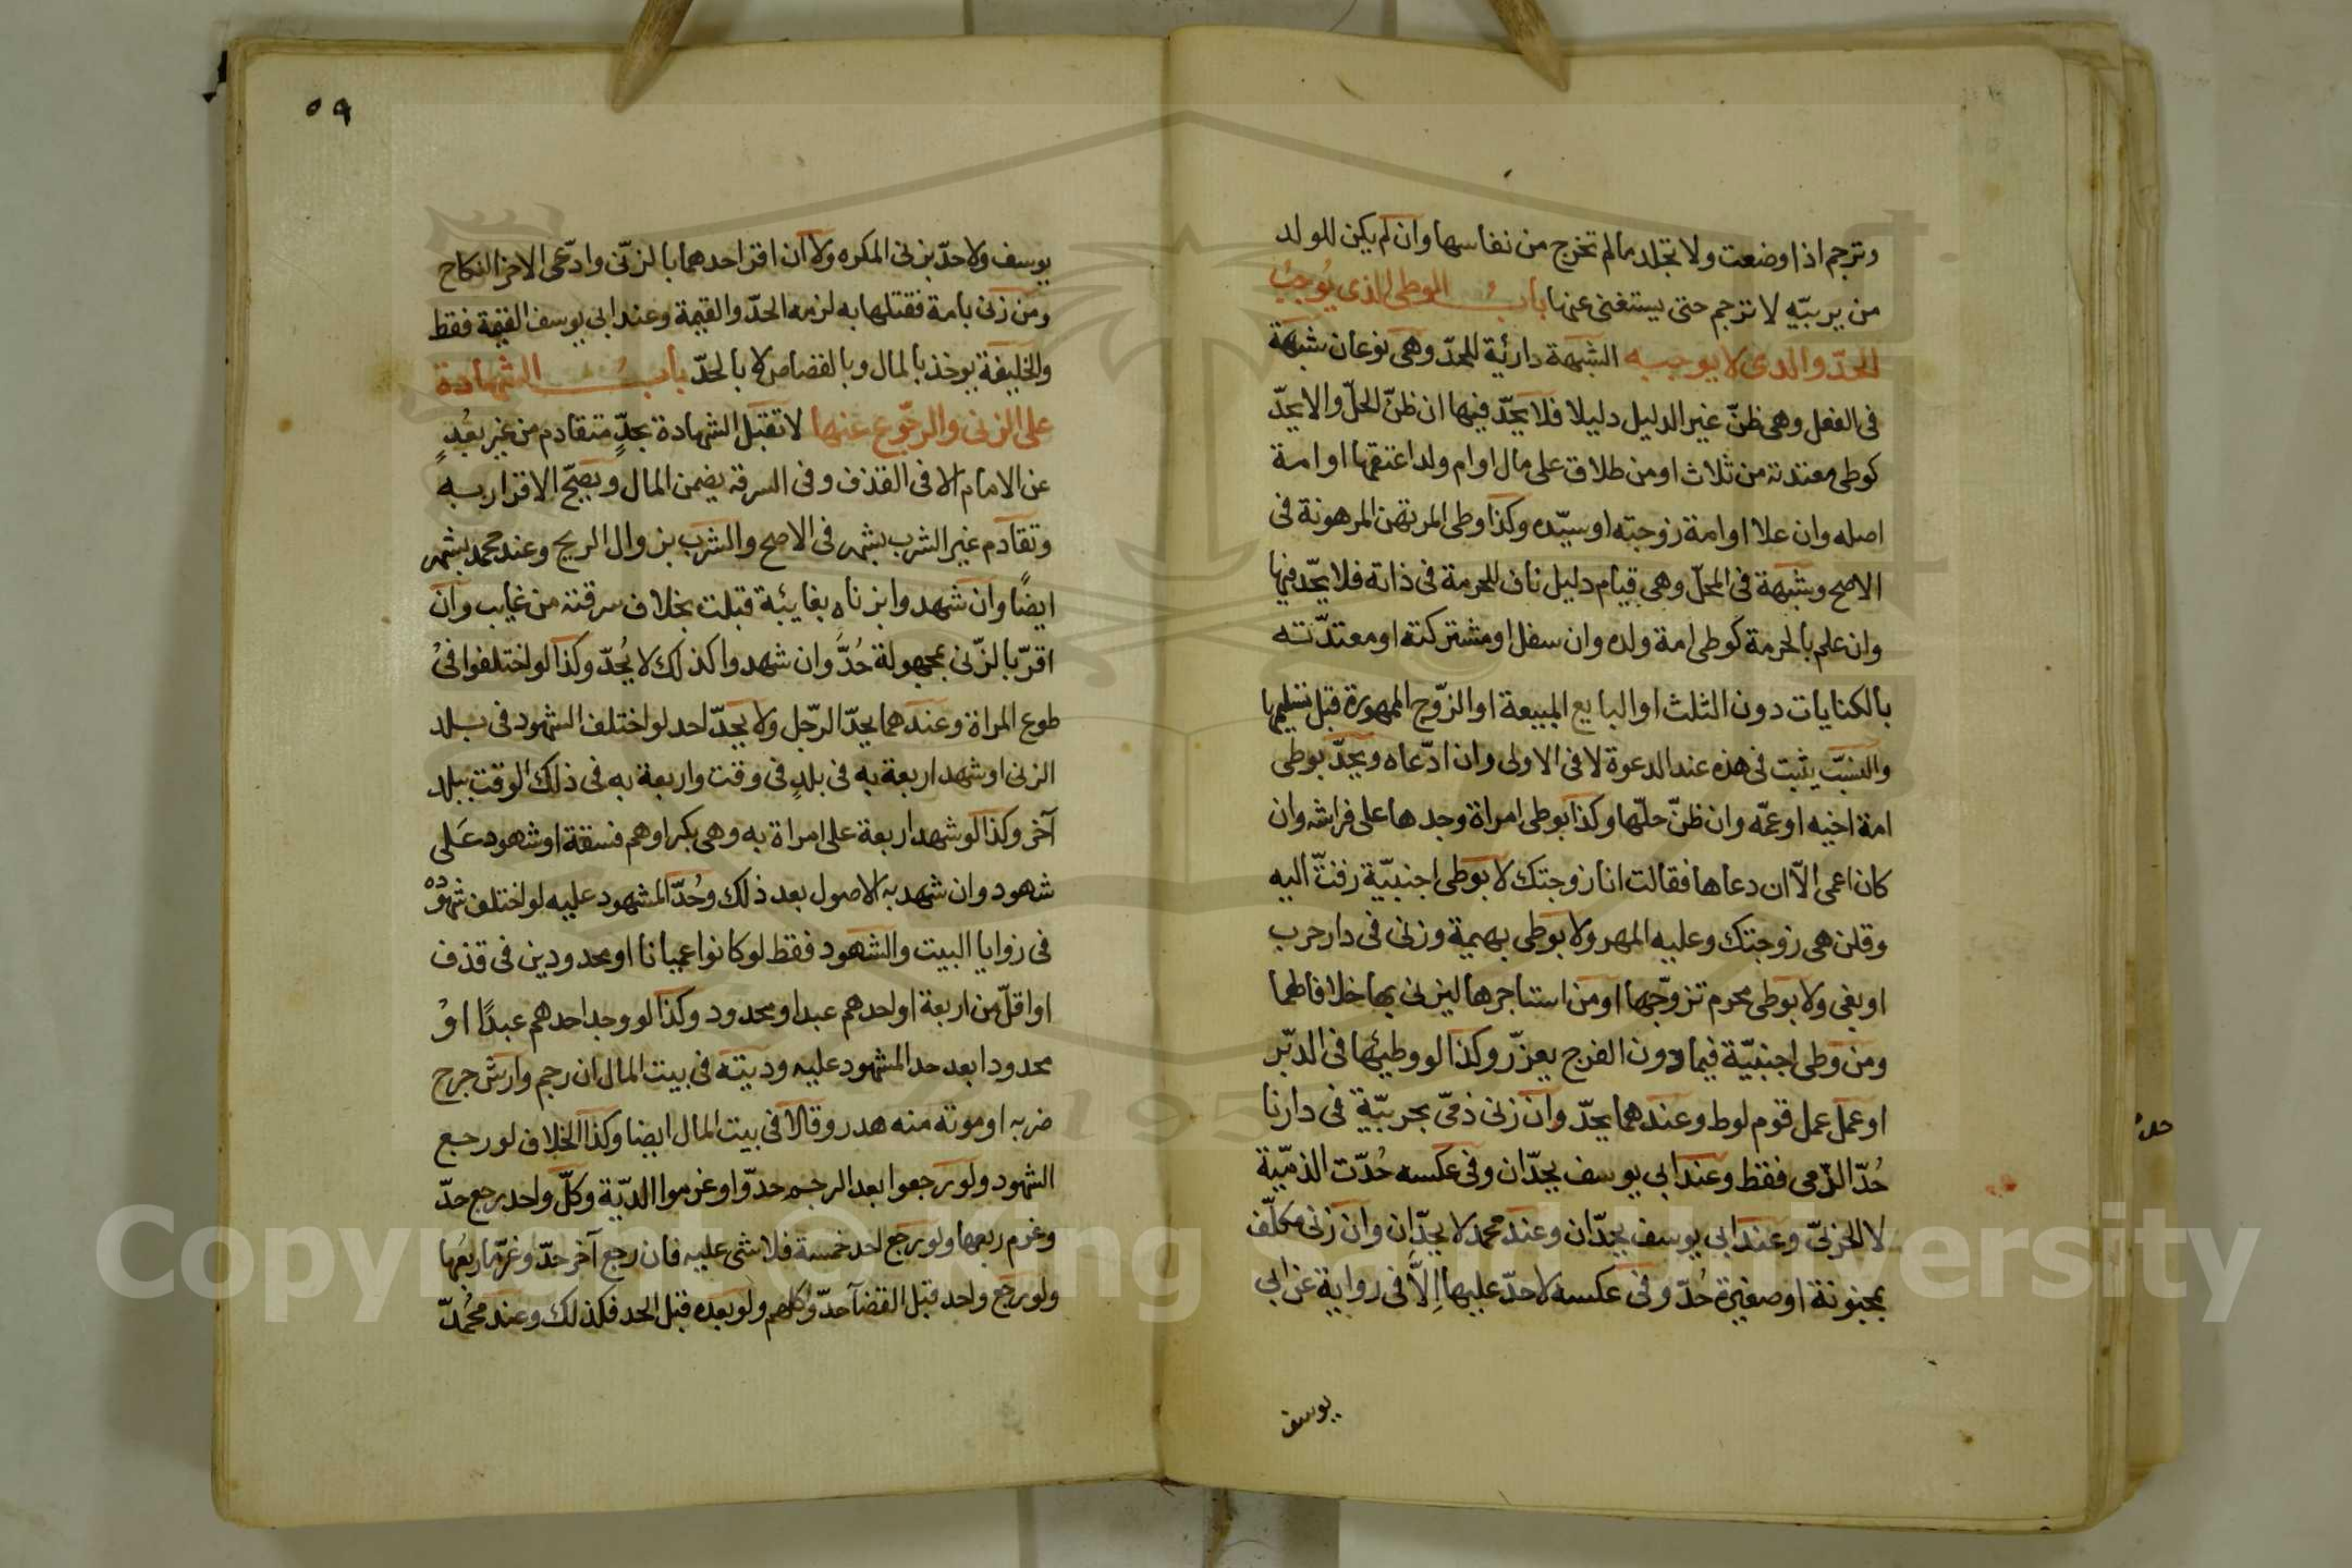 وترجم اذا وضعت ولا تجلد مالم تخرج من نفاسها وان لم يكن للولد
من يربيّه لا ترجم حتى يستغنى عنها باب الوطى الذى يُوجبُ
الحدّ والذى لا يوجبه الشبهة دارئة للحدّ وهى نوعان شبهة
فى الفعل وهى ظنّ غير الدليل دليلا فلا يحدّ فيها ان ظنّ الحلّ والا يحدّ
كوطى معتدته من ثلاث او من طلاق على مال او ام ولد اعتقها او امة
اصله وان علا او امة زوجته او سيّده وكذا وطى المرتهن المرهونة فى
الاصح وشبهة فى المحلّ وهى قيام دليل ناف للحرمة فى ذاته فلا يحّد فيها
وان علم بالحرمة كوطى امة ولده وان سفل او مشتركته او معتدّته
بالكنايات دون الثلث او البايع المبيعة او الزّوج الممهورة قبل تسليمها
والنسب يثبت فى هذه عند الدعوة لا فى الاولى وان ادّعاه ويحدّ بوطى
امة اخيه او عمّه وان ظنّ حلّها وكذا بوطى امراة وجدها على فراشه وان
كان اعمى الاّ ان دعاها فقالت انا زوجتك لا بوطى اجنبيّة زفتّ اليه
وقلن هى زوجتك وعليه المهر ولا بوطى بهيمة وزنى فى دار حرب
او بغى ولا بوطى محرم تزوّجها او من استاجرها ليزنى بها خلافا لهما
ومن وطى اجنبيّة فيما دون الفرج يعزّر وكذا لو وطيئها فى الدبّر
او عمل عمل قوم لوط وعندهما يحدّ وان زنى ذمّى بحربيّة فى دارنا
حُدّ الذّمى فقط وعند ابى يوسف يحدّان وفى عكسه حُدّت الذميّة
لا الحربىّ وعند ابى يوسف يحدّان وعند محمد لا يحدّان وان زنى مكلّف
بمجنونة او صغيرة حُدّ وفى عكسه لا حدّ عليها اِلاَّ فى رواية عن ابى
يوسف
٥٩
يوسف ولا حدّ بزنى المكره ولا ان اقر احدهما بالزنّى وادّعى الاخر النكاح
ومن زنى بامة فقتلها به لزمه الحدّ والقيمة وعند ابى يوسف القيمة فقط
والخليفة يوخذ بالمال وبالقصاص لا بالحدّ باب الشهادة
على الزنى والرجّوع عنها لا تقبل الشهادة بحدٍّ متقادم من غير بعُدٍ
عن الامام الا فى القذف وفى السرقة يضمن المال ويصحّ الاقرار به
وتقادم غير الشرب بشهر فى الاصح والشرب بزوال الريح وعند محمد بشهر
ايضًا وان شهدوا بزناه بغايئبة قبلت بخلاف سرقته من غايب وان
اقرّ بالزّنى بمجهولة حُدَّ وان شهدوا كذلك لا يُحدّ وكذا لو اختلفوا فىْ
طوع المراة وعندهما يحدّ الرّجل ولا يحدّ احد لو اختلف الشهود فى بلد
الزنى او شهد اربعة به فى بلدٍ فى وقت واربعة به فى ذلك الوقت ببلد
آخر وكذا لو شهد اربعة على امراة به وهى بكر او هم فسقة او شهود عَلى
شهود وان شهد به الاصول بعد ذلك وحُدّ المشهود عليه لو اختلف شهوده
فى زوايا البيت والشهود فقط لو كانوا عميانا او محدودين فى قذف
او اقلّ من اربعة او احدهم عبدا ومحدود وكذا لو وجد احدهم عبدًا اوْ
محدودا بعد حد المشهود عليه وديته فى بيت المال ان رجم وارش جرح
ضربه او موته منه هدر وقالا فى بيت المال ايضا وكذا الخلاف لو رجع
الشهود ولو رجعوا بعد الرجم حدوّا وغرموا الديّة وكلّ واحد رجع حدّ
وغرم ربعها ولو رجع احد خمسة فلا شى عليه فان رجع آخر حدّ وغرّما ربعُها
ولو رجع واحد قبل القضآ حدّوُا كلهم ولو بعده قبل الحد فكذلك وعند محُمدّ